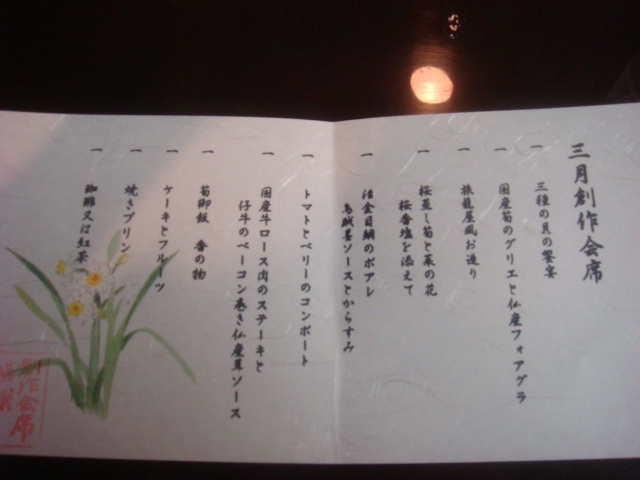 三月創作会席
一 三種の貝の饗宴
一 国産筍のグリエと仏産フォアグラ
一 旅籠屋風お造り
一 桜蒸し筍と菜の花
桜香塩を添えて
一 活金目鯛のポアレ
烏賊墨ソースとからすみ
一 トマトとベリーのコンポート
一 国産牛ロース肉のステーキと
仔牛のベーコン巻き仏産茸ソース
一 筍御飯 香の物
一 ケーキとフルーツ
一 焼きプリン
一 珈琲又は紅茶
創作会席